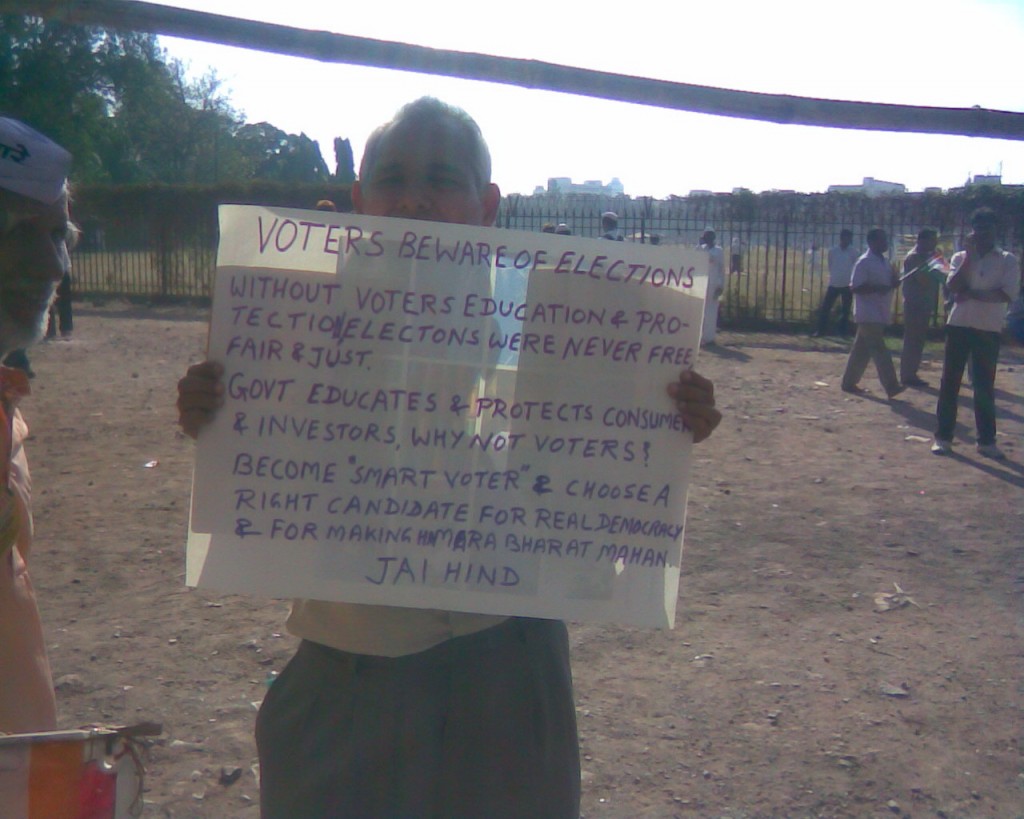 VOTERS BEWARE OF ELECTIONS
WITHOUT VOTERS EDUCATION & PRO-
TECTION ELECTONS WERE NEVER FREE
FAIR & JUST.
GOVT EDUCATES & PROTECTS CONSUMER
& INVESTORS, WHY NOT VOTERS!
BECOME "SMART VOTER" & CHOOSE A
RIGHT CANDIDATE FOR REAL DEMOCRACY
& FOR MAKING HAMARA BHARAT MAHAN.
JAI HIND